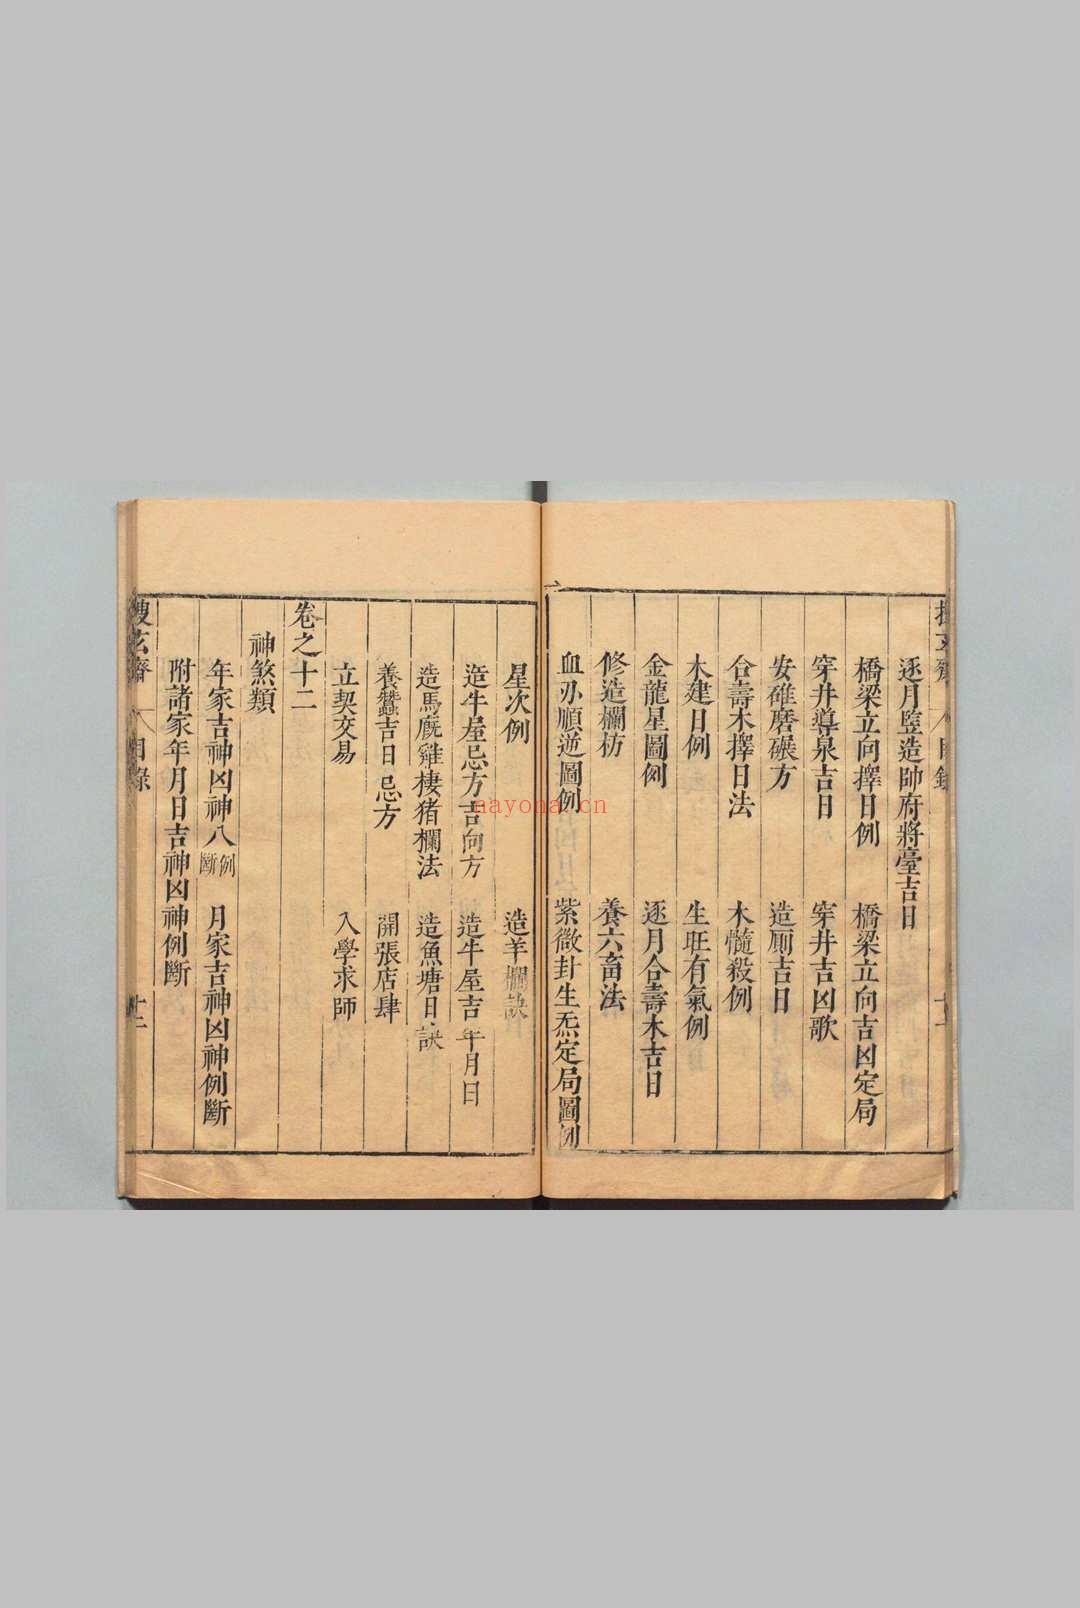 逐月竪造帥府將臺吉日
橋梁立向擇日例　橋梁立向吉凶定局
穿井導泉吉日　穿井吉凶歌
安碓磨碾方　造厠吉日
合壽木擇日法　木髓殺例
木建日例　生旺有氣例
金龍星圖例　逐月合壽木吉日
修造欄枋　養六畜法
血刃順逆圖例　紫微封生炁定局圖例
星次例　造羊欄訣
造牛屋忌方吉向方　造牛屋吉年月日
造馬廐雞棲猪欄法　造魚塘日訣
養蠶吉日忌方　開張店肆
立契交易　入學求師
卷之十二
神煞類
年家吉神凶神八例斷　月家吉神凶神例斷
附諸家年月日吉神凶神例斷
搜玄齋　目錄　十二
nayona.cn